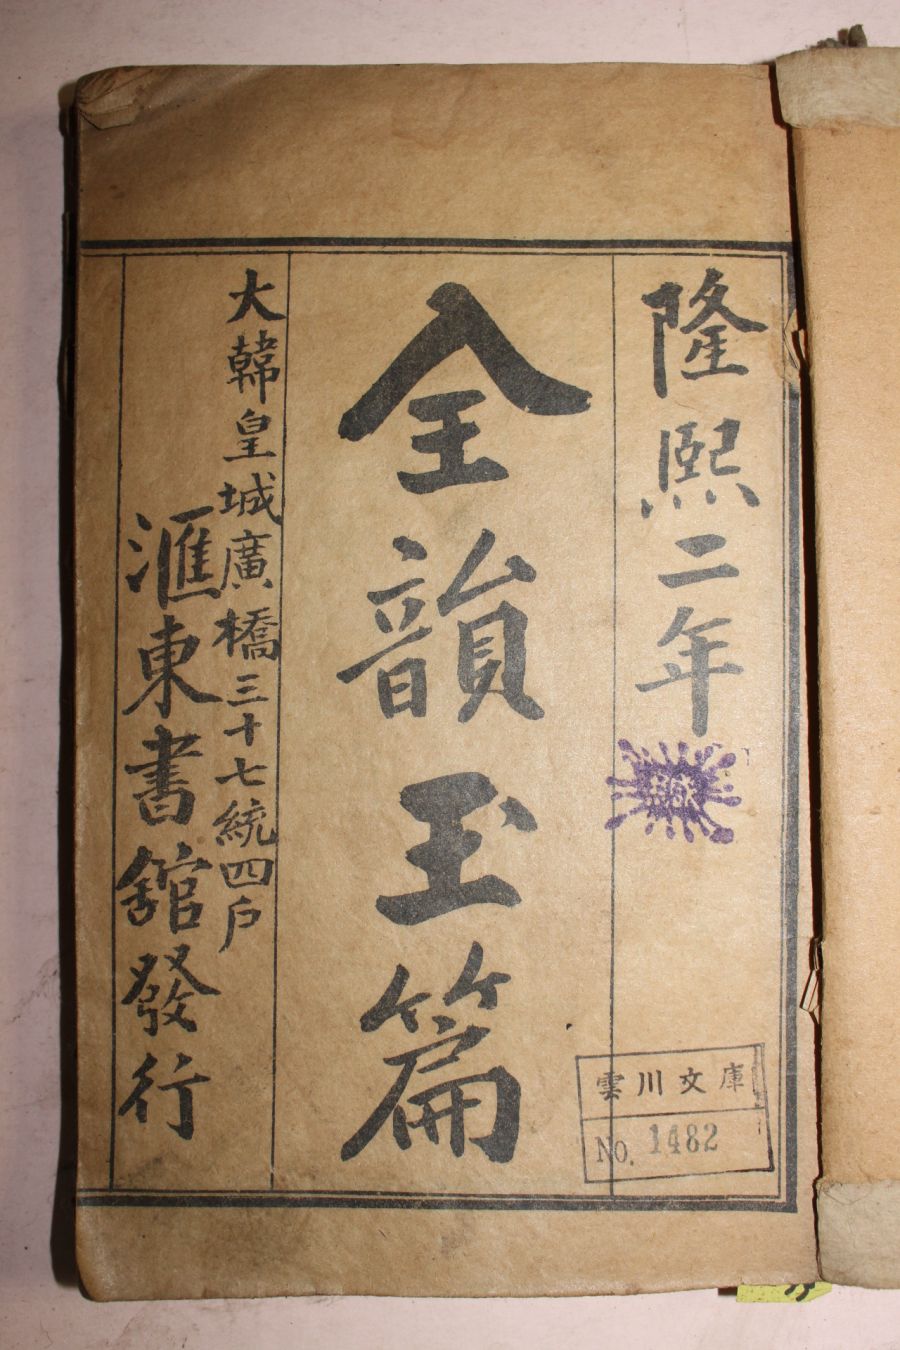 隆熙二年
全韻玉篇
大韓皇城廣橋三十七統四戶
滙東書舘發行
雲川文庫
No. 1482